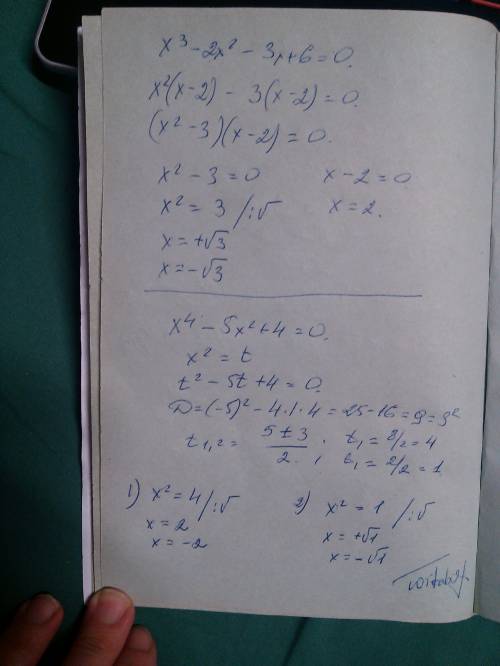 x³ - 2x² - 3x + 6 = 0.
x²(x - 2) - 3(x - 2) = 0.
(x² - 3)(x - 2) = 0.
x² - 3 = 0 x - 2 = 0
x² = 3 /:√ x = 2.
x = +√3
x = -√3
x⁴ - 5x² + 4 = 0.
x² = t
t² - 5t + 4 = 0.
D = (-5)² - 4·1·4 = 25 - 16 = 9 = 3²
t₁,₂ = (5 ± 3)/2. ; t₁ = 8/2 = 4
, t₁ = 2/2 = 1
1) x² = 4 /:√ 2) x² = 1 /:√
x = 2 x = +√1
x = -2 x = -√1